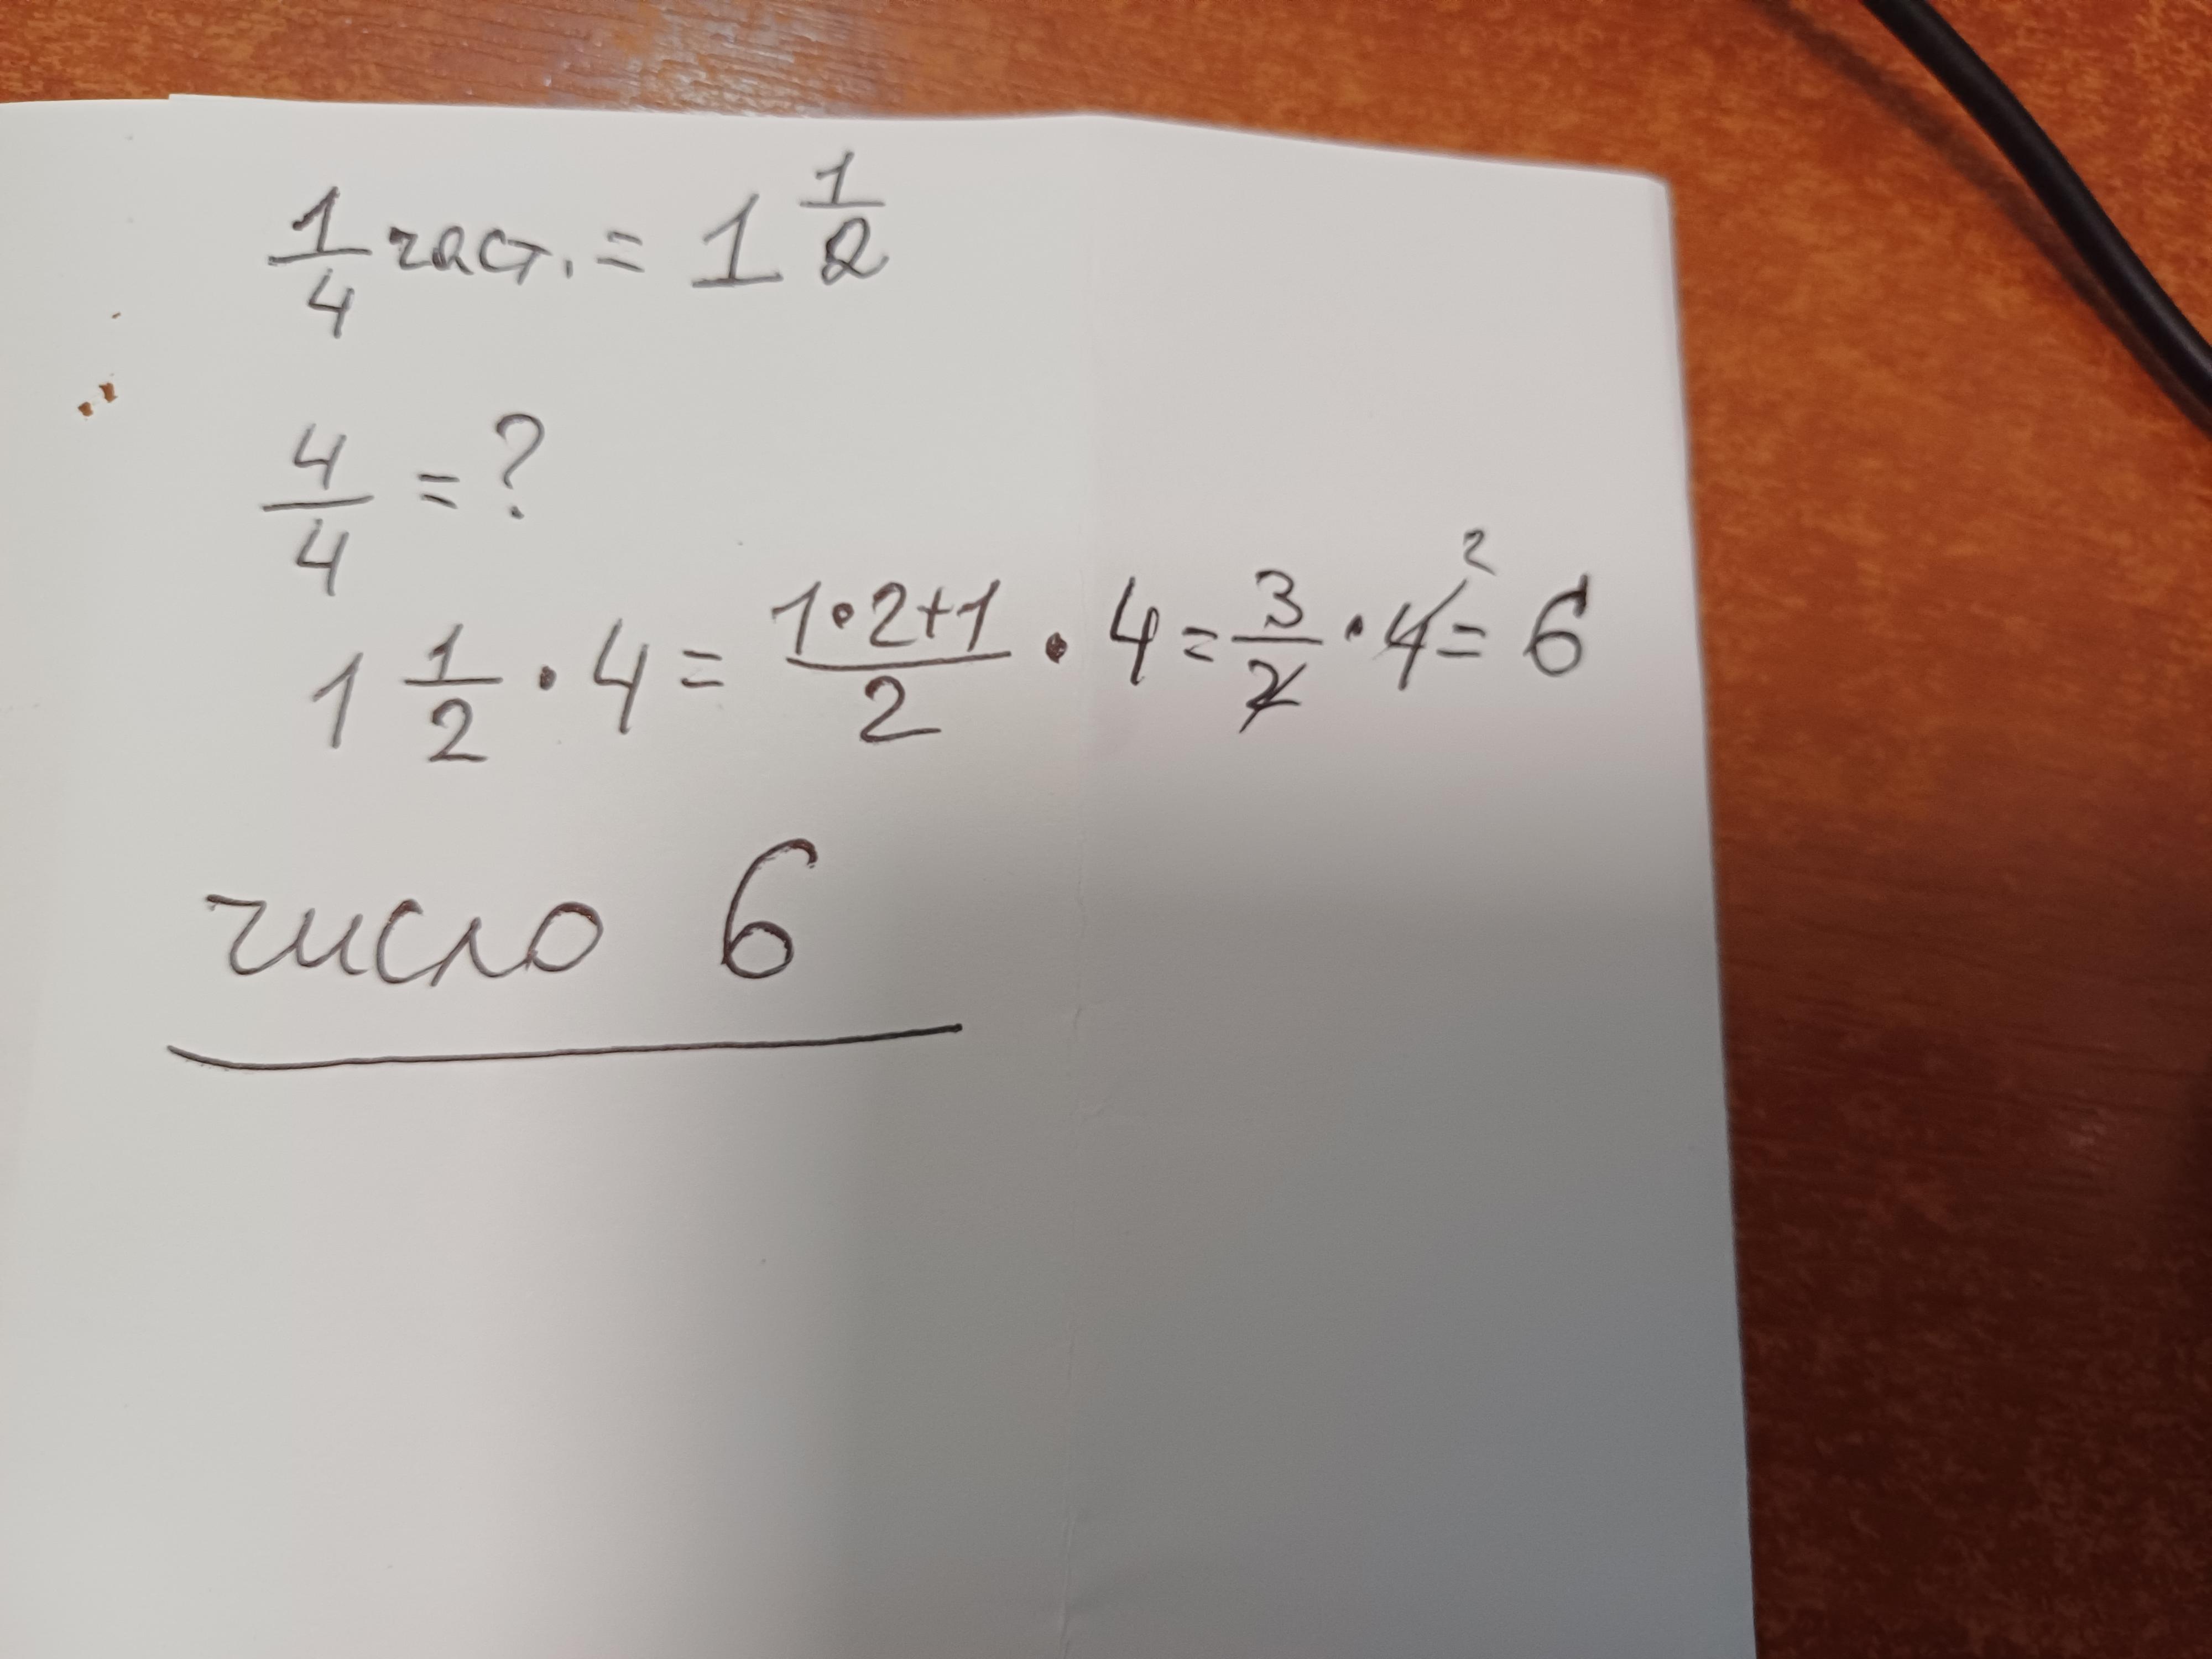 1/4 част. = 1 1/2
4/4 = ?
1 1/2 • 4 = (1•2+1)/2 • 4 = 3/2 • 4 2 = 6
число 6